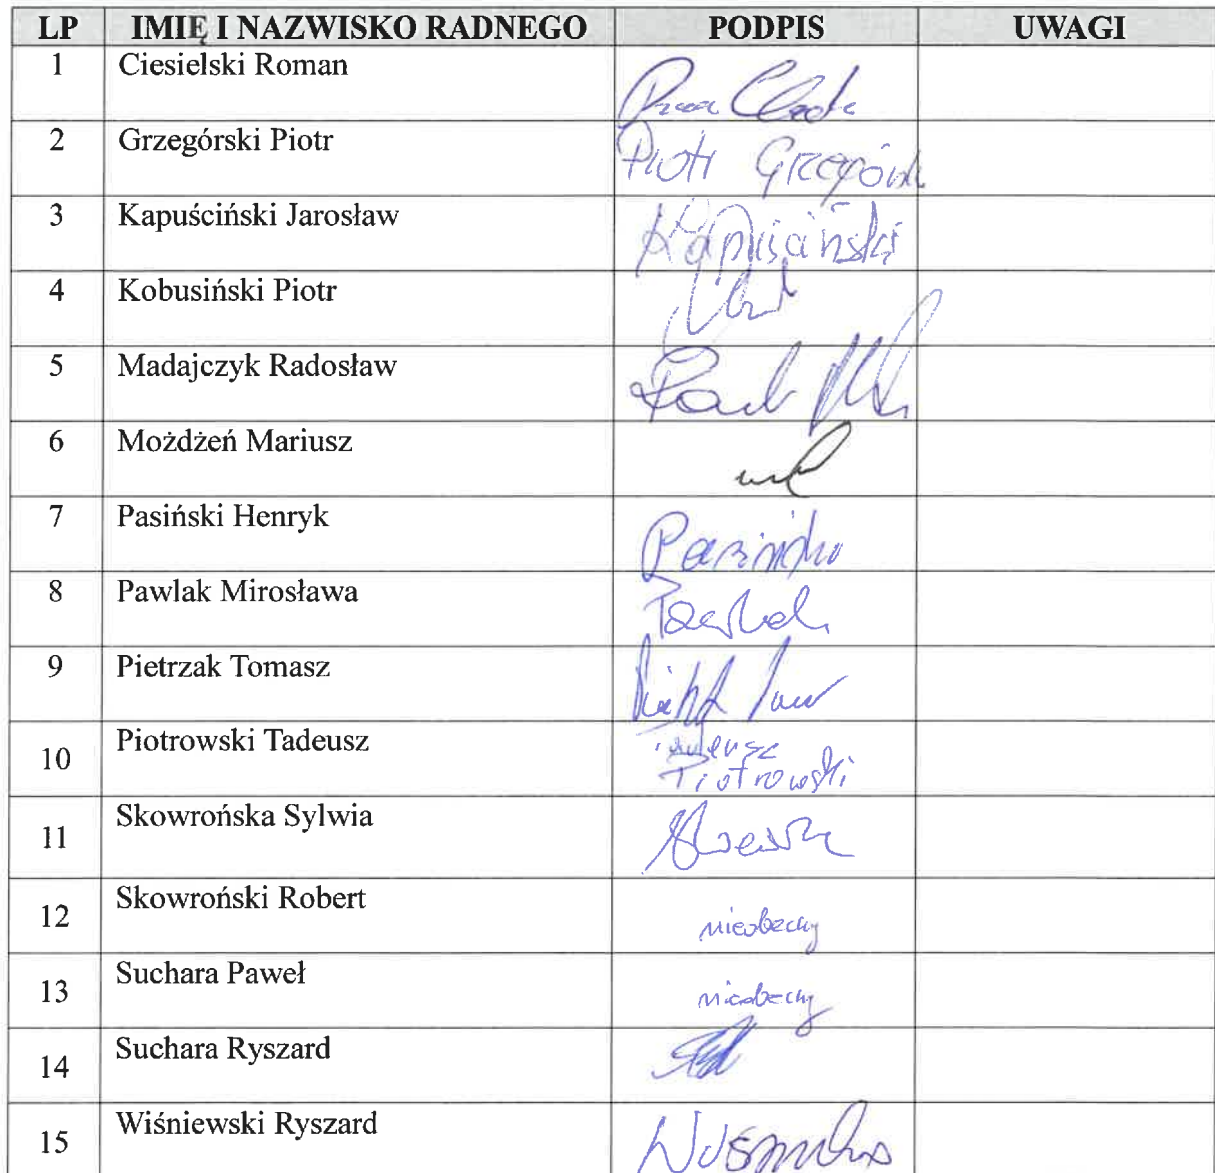 LP IMIĘ I NAZWISKO RADNEGO PODPIS UWAGI
1 Ciesielski Roman
2 Grzegórski Piotr Piotr
3 Kapuściński Jarosław Kapuściński
4 Kobusiński Piotr
5 Madajczyk Radosław
6 Możdżeń Mariusz
7 Pasiński Henryk
8 Pawlak Mirosława
9 Pietrzak Tomasz
10 Piotrowski Tadeusz Tadeusz
Piotrowski
11 Skowrońska Sylwia
12 Skowroński Robert nieobecny
13 Suchara Paweł nieobecny
14 Suchara Ryszard
15 Wiśniewski Ryszard